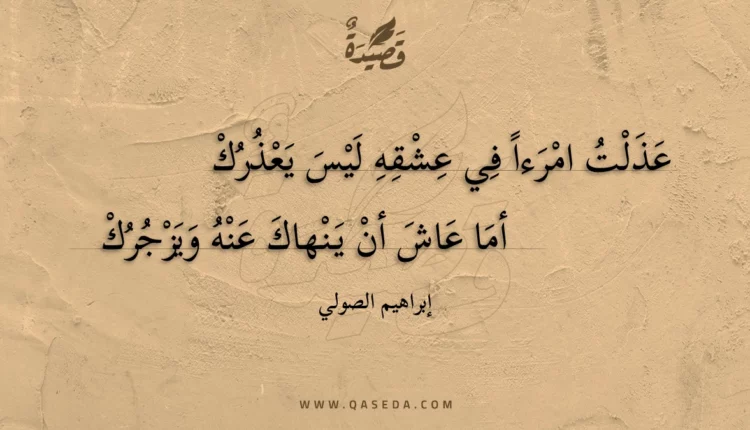 قَصِيدَةٌ
عَذَلْتُ امْرَءاً فِي عِشْقِهِ لَيْسَ يَعْذُرُكْ
أمَا عَاشَ أنْ يَنْهاكَ عَنْهُ وَيَزْجُرُكْ
إبراهيم الصولي
WWW.QASEDA.COM